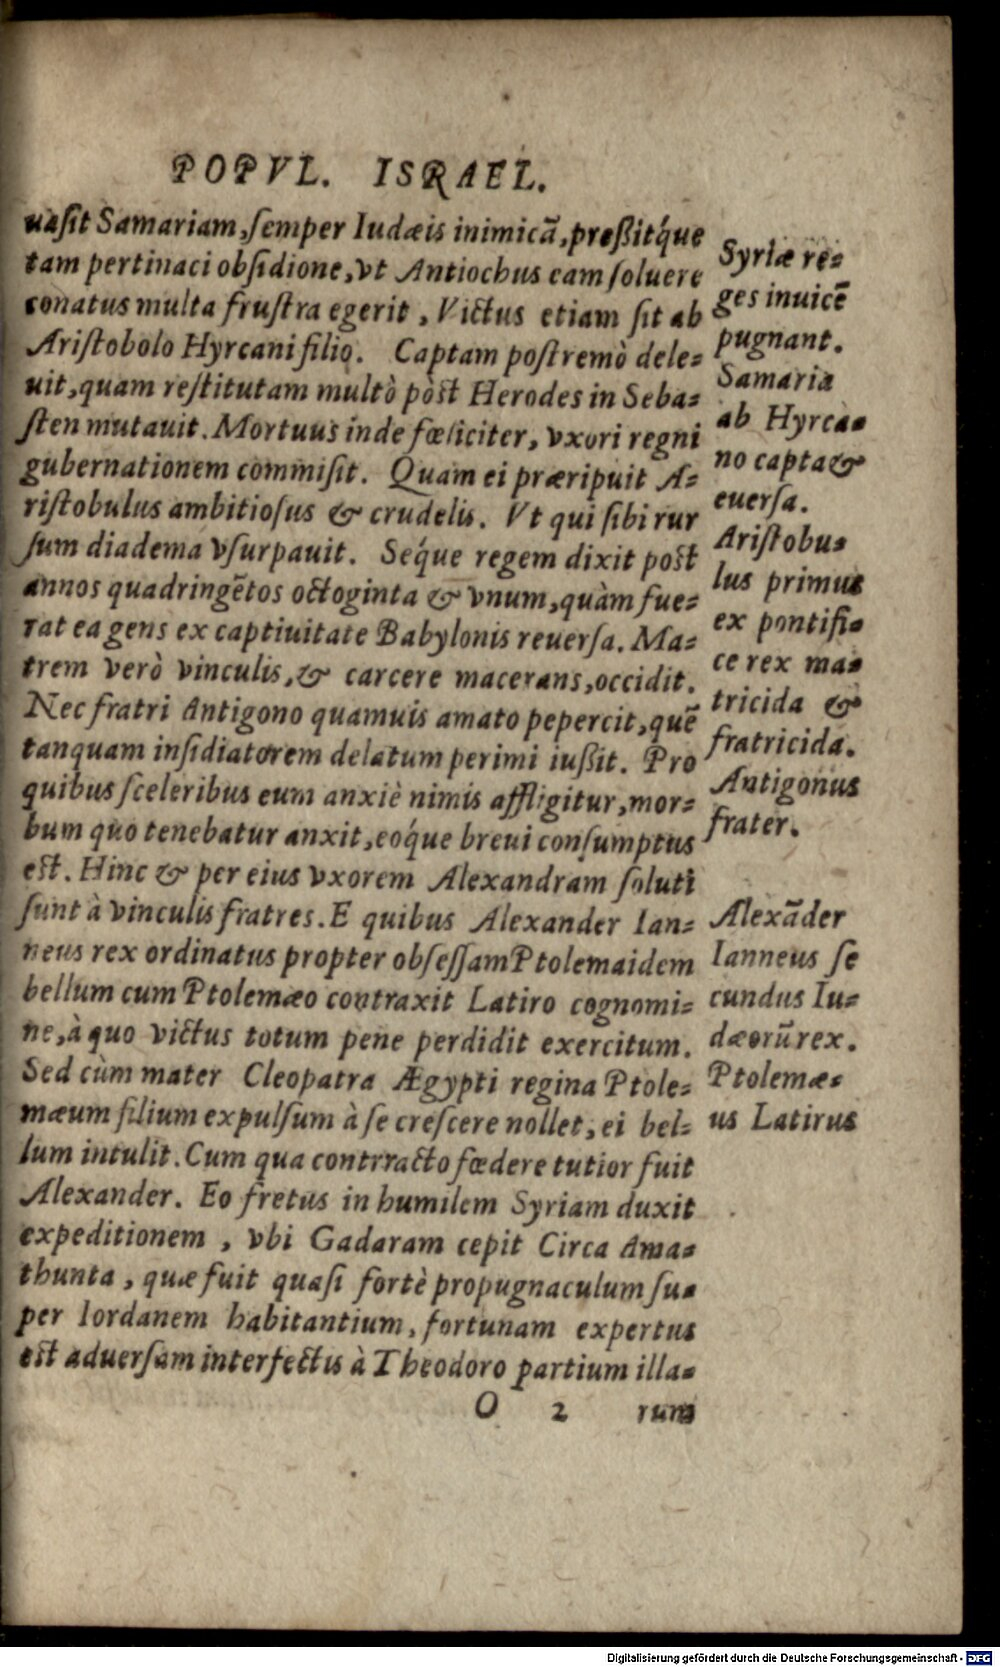 POPVL. ISRAEL.
uaſit Samariam, ſemper Iudæis inimicā, preßitq́ue
tam pertinaci obſidione, vt Antiochus eam ſoluere
conatus multa fruſtra egerit, Victus etiam ſit ab
Ariſtobolo Hyrcani filio. Captam poſtremò dele-
uit, quam reſtitutam multò pòst Herodes in Seba-
ſten mutauit. Mortuus inde fœliciter, vxori regni
gubernationem commiſit. Quam ei præripuit A-
riſtobulus ambitioſus & crudelis. Vt qui ſibi rur
ſum diadema vſurpauit. Seq́ue regem dixit post
annos quadringētos octoginta & vnum, quàm fue-
rat ea gens ex captiuitate Babylonis reuerſa. Ma-
trem verò vinculis, & carcere macerans, occidit.
Nec fratri Antigono quamuis amato pepercit, quē
tanquam inſidiatorem delatum perimi iußit. Pro
quibus ſceleribus eum anxiè nimis affligitur, mor-
bum quo tenebatur anxit, eoq́ue breui conſumptus
est. Hinc & per eius vxorem Alexandram ſoluti
ſunt à vinculis fratres. E quibus Alexander Ian-
neus rex ordinatus propter obſeſſam Ptolemaidem
bellum cum Ptolemæo contraxit Latiro cognomi-
ne, à quo victus totum pene perdidit exercitum.
Sed cùm mater Cleopatra Ægypti regina Ptole-
mæum filium expulſum à ſe creſcere nollet, ei bel-
lum intulit. Cum qua contrracto fœdere tutior fuit
Alexander. Eo fretus in humilem Syriam duxit
expeditionem, vbi Gadaram cepit Circa Ama-
thunta, quæ fuit quaſi fortè propugnaculum ſu-
per Iordanem habitantium, fortunam expertus
est aduerſam interfectis à Theodoro partium illa-
O 2 rum
Syriæ re-
ges inuicē
pugnant.
Samaria
ab Hyrca-
no capta &
euerſa.
Ariſtobu-
lus primus
ex pontifi-
ce rex ma-
tricida &
fratricida.
Antigonus
frater.
Alexāder
Ianneus ſe
cundus Iu-
dæorū rex.
Ptolemæ-
us Latirus
Digitalisierung gefördert durch die Deutsche Forschungsgemeinschaft - DFG